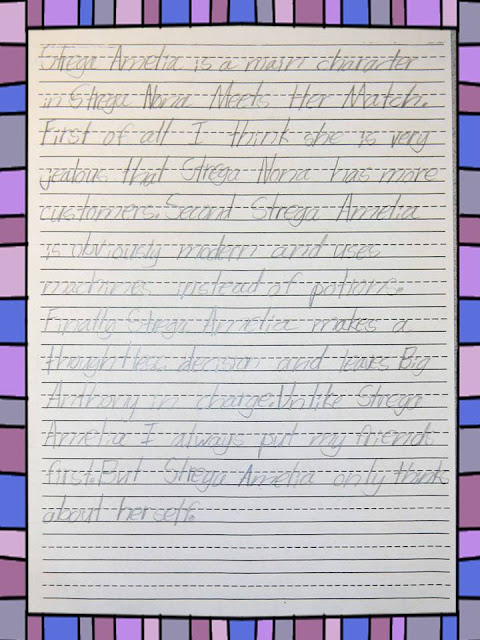 Strega Amelia is a main character
in Strega Nona Meets Her Match.
First of all I think she is very
jealous that Strega Nona has more
customers. Second Strega Amelia
is obviously modern and uses
machines instead of potions.
Finally Strega Amelia makes a
thoughtless decision and leaves Big
Anthony in charge. Unlike Strega
Amelia I always put my friends
first. But Strega Amelia only thinks
about herself.